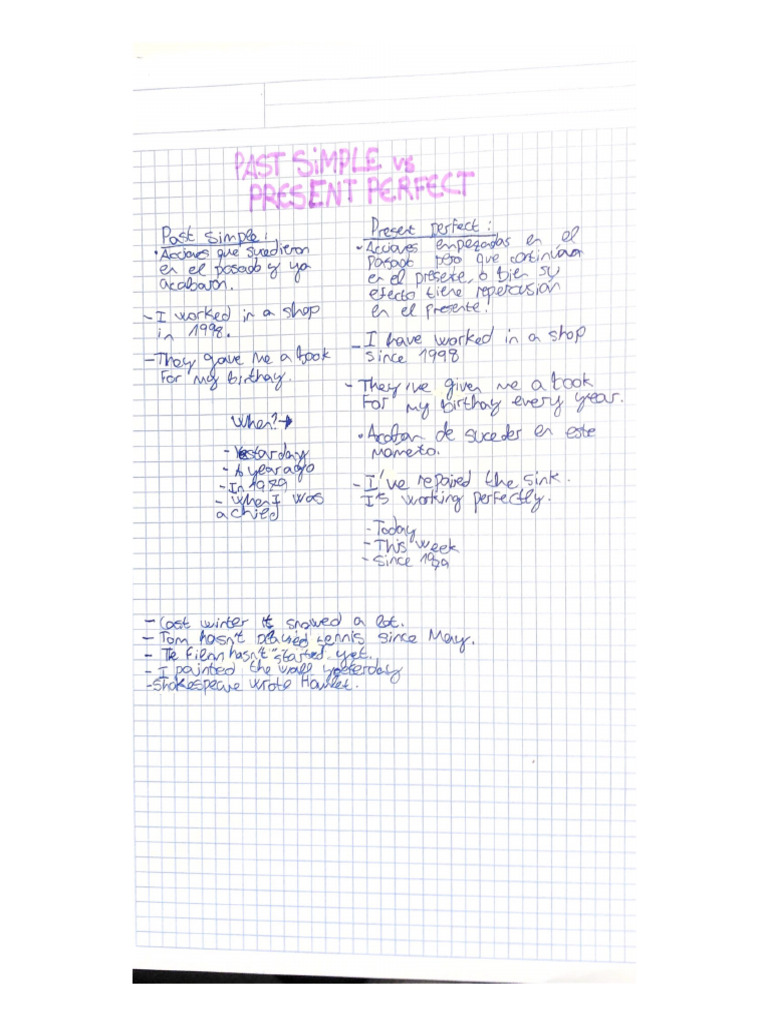 PAST SIMPLE vs
PRESENT PERFECT
Past simple:
• Acciones que sucedieron
en el pasado y ya
acabaron.
- I worked in a shop
in 1998.
- They gave me a book
For my birthay.
When? →
- Yestarday
- A year ago
- In 1979
- When I was
a chied
Present perfect:
• Acciones empezadas en el
pasado pero que continúan
en el presete, o bien su
efecto tiene repercusión
en el presente!
- I have worked in a shop
since 1998
- They've given me a book
For my birthay every year.
• Acaban de suceder en este
mometo.
- I've repaired the sink.
I's working perfectly.
- Today
- This week
- Since 1979
- Last winter it snowed a lot.
- Tom hasn't played tennis since May.
- The hasn't started yet.
- I painted the wall yesterday
- Shakespeare wrote Hamlet.